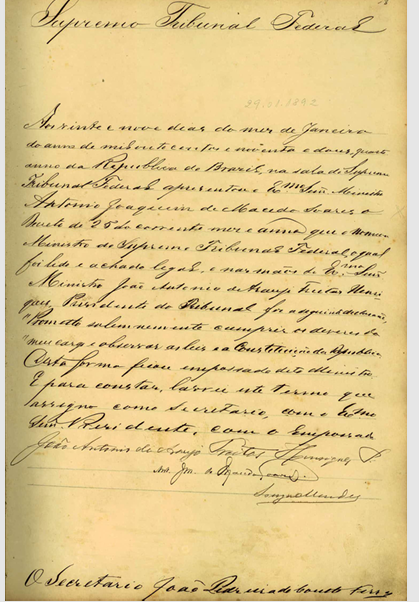 Supremo Tribunal Federal
29.01.1892
Aos vinte e nove dias do mez de Janeiro
do anno de mil oito centos e noventa e dous, quarto
anno da Republica do Brazil, na sala do Supremo
Tribunal Federal apresentou o Exmo Snr. Ministro
Antonio Joaquim de Macedo Soares o
Decreto de 25 do corrente mez e anno que o nomeou
Ministro do Supremo Tribunal Federal, o qual
foi lido e achado legal, e nas mãos do Exmo Snr.
Ministro João Antonio de Araujo Freitas Henri
ques, Presidente do Tribunal fez a
"Prometto solemnemente cumprir os deveres do
meu cargo e observar as leis e a Constituição da Republica
Desta forma ficou empossado dito Ministro
E para constar, lavrei este termo que
assigno como Secretario, com o Exmo
Snr. Presidente, com o Empossado
João Antonio de Araujo Freitas Henriques P.
Ant. Jm. de Macedo Soares
O Secretario João Pedreira do Coutto Ferraz